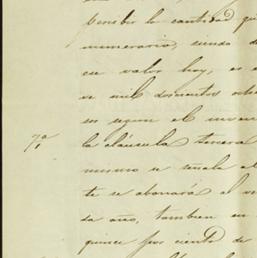 recibir la cantidad qu
numerario, siendo d
ese valor hoy, es
ve mil doscientos och
os segun el inven
7ª la cláusula tercera
mismo se señala el
te se abonará el
da año, tambien en
quince por ciento de